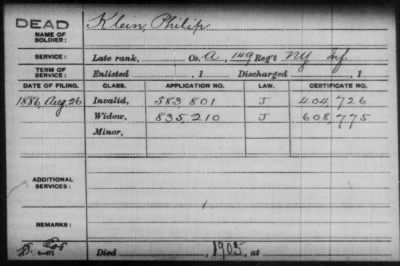 DEAD
NAME OF SOLDIER: Klein, Philip
SERVICE: Late rank, Co. A, 149 Reg't NY Inf.
TERM OF SERVICE: Enlisted , 1 Discharged , 1
DATE OF FILING. CLASS. APPLICATION NO. LAW. CERTIFICATE NO.
1886, Aug 26 Invalid, 583 801 J 404,726
Widow, 835,210 J 608,775
Minor,
ADDITIONAL SERVICES:
REMARKS:
Died , 1905, at